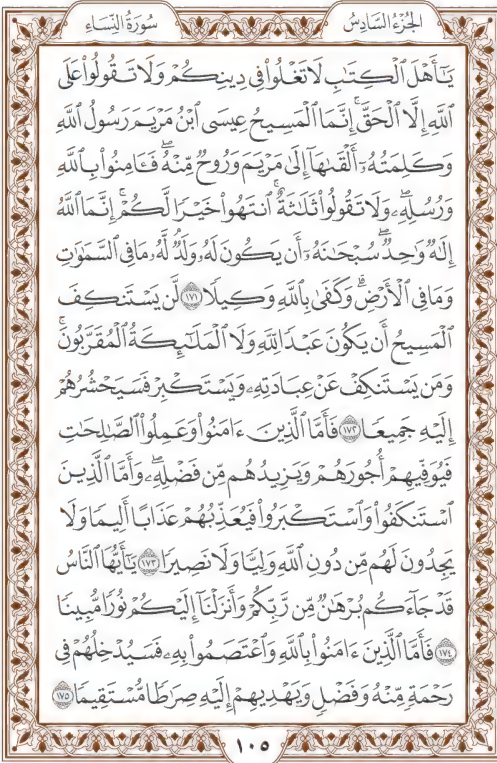 الجُزْءُ السَّادِسُ
سُورَةُ النِّسَاءِ
يَـٰٓأَهْلَ ٱلْكِتَـٰبِ لَا تَغْلُوا۟ فِى دِينِكُمْ وَلَا تَقُولُوا۟ عَلَى
ٱللَّهِ إِلَّا ٱلْحَقَّ ۚ إِنَّمَا ٱلْمَسِيحُ عِيسَى ٱبْنُ مَرْيَمَ رَسُولُ ٱللَّهِ
وَكَلِمَتُهُۥٓ أَلْقَىٰهَآ إِلَىٰ مَرْيَمَ وَرُوحٌ مِّنْهُ ۖ فَـَٔامِنُوا۟ بِٱللَّهِ
وَرُسُلِهِۦ ۖ وَلَا تَقُولُوا۟ ثَلَـٰثَةٌ ۚ ٱنتَهُوا۟ خَيْرًا لَّكُمْ ۚ إِنَّمَا ٱللَّهُ
إِلَـٰهٌ وَٰحِدٌ ۖ سُبْحَـٰنَهُۥٓ أَن يَكُونَ لَهُۥ وَلَدٌ ۘ لَّهُۥ مَا فِى ٱلسَّمَـٰوَٰتِ
وَمَا فِى ٱلْأَرْضِ ۗ وَكَفَىٰ بِٱللَّهِ وَكِيلًا ١٧١ لَّن يَسْتَنكِفَ
ٱلْمَسِيحُ أَن يَكُونَ عَبْدًا لِّلَّهِ وَلَا ٱلْمَلَـٰٓئِكَةُ ٱلْمُقَرَّبُونَ ۚ
وَمَن يَسْتَنكِفْ عَنْ عِبَادَتِهِۦ وَيَسْتَكْبِرْ فَسَيَحْشُرُهُمْ
إِلَيْهِ جَمِيعًا ١٧٢ فَأَمَّا ٱلَّذِينَ ءَامَنُوا۟ وَعَمِلُوا۟ ٱلصَّـٰلِحَـٰتِ
فَيُوَفِّيهِمْ أُجُورَهُمْ وَيَزِيدُهُم مِّن فَضْلِهِۦ ۖ وَأَمَّا ٱلَّذِينَ
ٱسْتَنكَفُوا۟ وَٱسْتَكْبَرُوا۟ فَيُعَذِّبُهُمْ عَذَابًا أَلِيمًا وَلَا
يَجِدُونَ لَهُم مِّن دُونِ ٱللَّهِ وَلِيًّا وَلَا نَصِيرًا ١٧٣ يَـٰٓأَيُّهَا ٱلنَّاسُ
قَدْ جَآءَكُم بُرْهَـٰنٌ مِّن رَّبِّكُمْ وَأَنزَلْنَآ إِلَيْكُمْ نُورًا مُّبِينًا
١٧٤ فَأَمَّا ٱلَّذِينَ ءَامَنُوا۟ بِٱللَّهِ وَٱعْتَصَمُوا۟ بِهِۦ فَسَيُدْخِلُهُمْ فِى
رَحْمَةٍ مِّنْهُ وَفَضْلٍ وَيَهْدِيهِمْ إِلَيْهِ صِرَٰطًا مُّسْتَقِيمًا ١٧٥
١٠٥